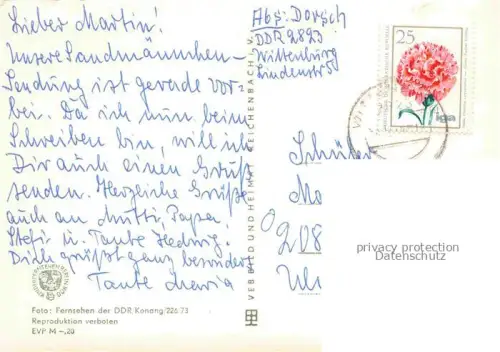 Lieber Martin!
Unsere Sandmännchen-
Sendung ist gerade vor-
bei. Da ich nun beim
Schreiben bin, will ich
Dir auch einen Gruß
senden. Herzliche Grüße
auch an Mutti, Papa
Stefi u. Tante Hedwig!
Dich grüßt ganz besonders
Tante
Abs: Dorsch
DDR 2823
Wittenburg
Lindenstr 5
25
iga
Schüler
Mo
0208
privacy protection
Datenschutz
VEB BILD UND HEIMAT REICHENBACH
Foto: Fernsehen der DDR/Konang/226/73
Reproduktion verboten
EVP M -,20